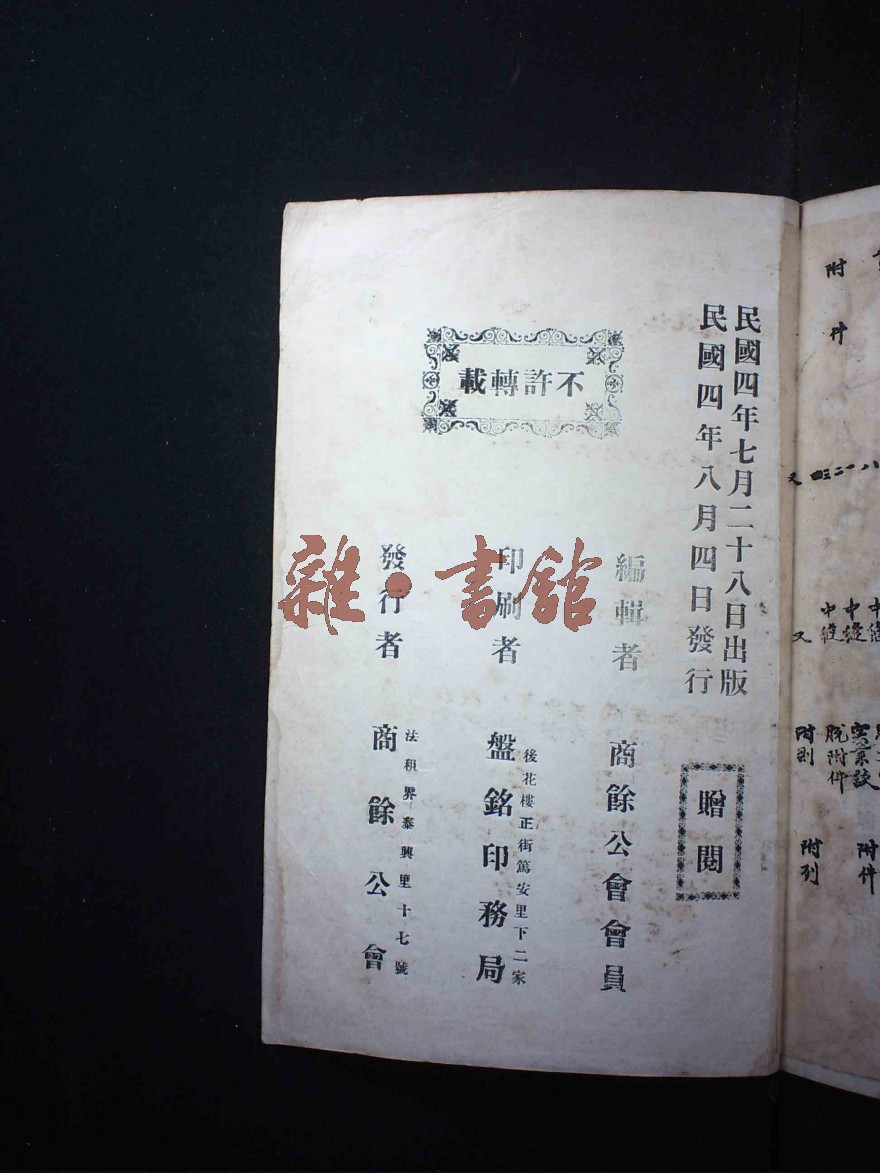 附件
又
四三二一八
中縫
中縫
又
脫附件
附則
附件
附列
民國四年七月二十八日出版
民國四年八月四日發行
贈閱
不許轉載
編輯者
商餘公會會員
印刷者
後花樓正街篤安里下二家
盤銘印務局
發行者
法租界泰興里十七號
商餘公會
雜·書館